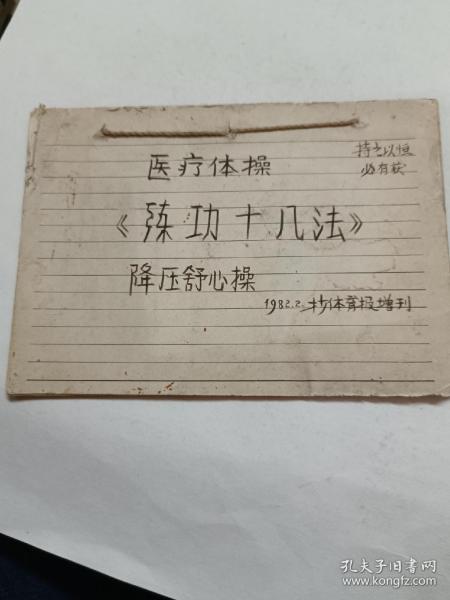 医疗体操
持之以恒
必有获
《练功十八法》
降压舒心操
1982.2. 抄体育报增刊
孔夫子旧书网
www.kongfz.com